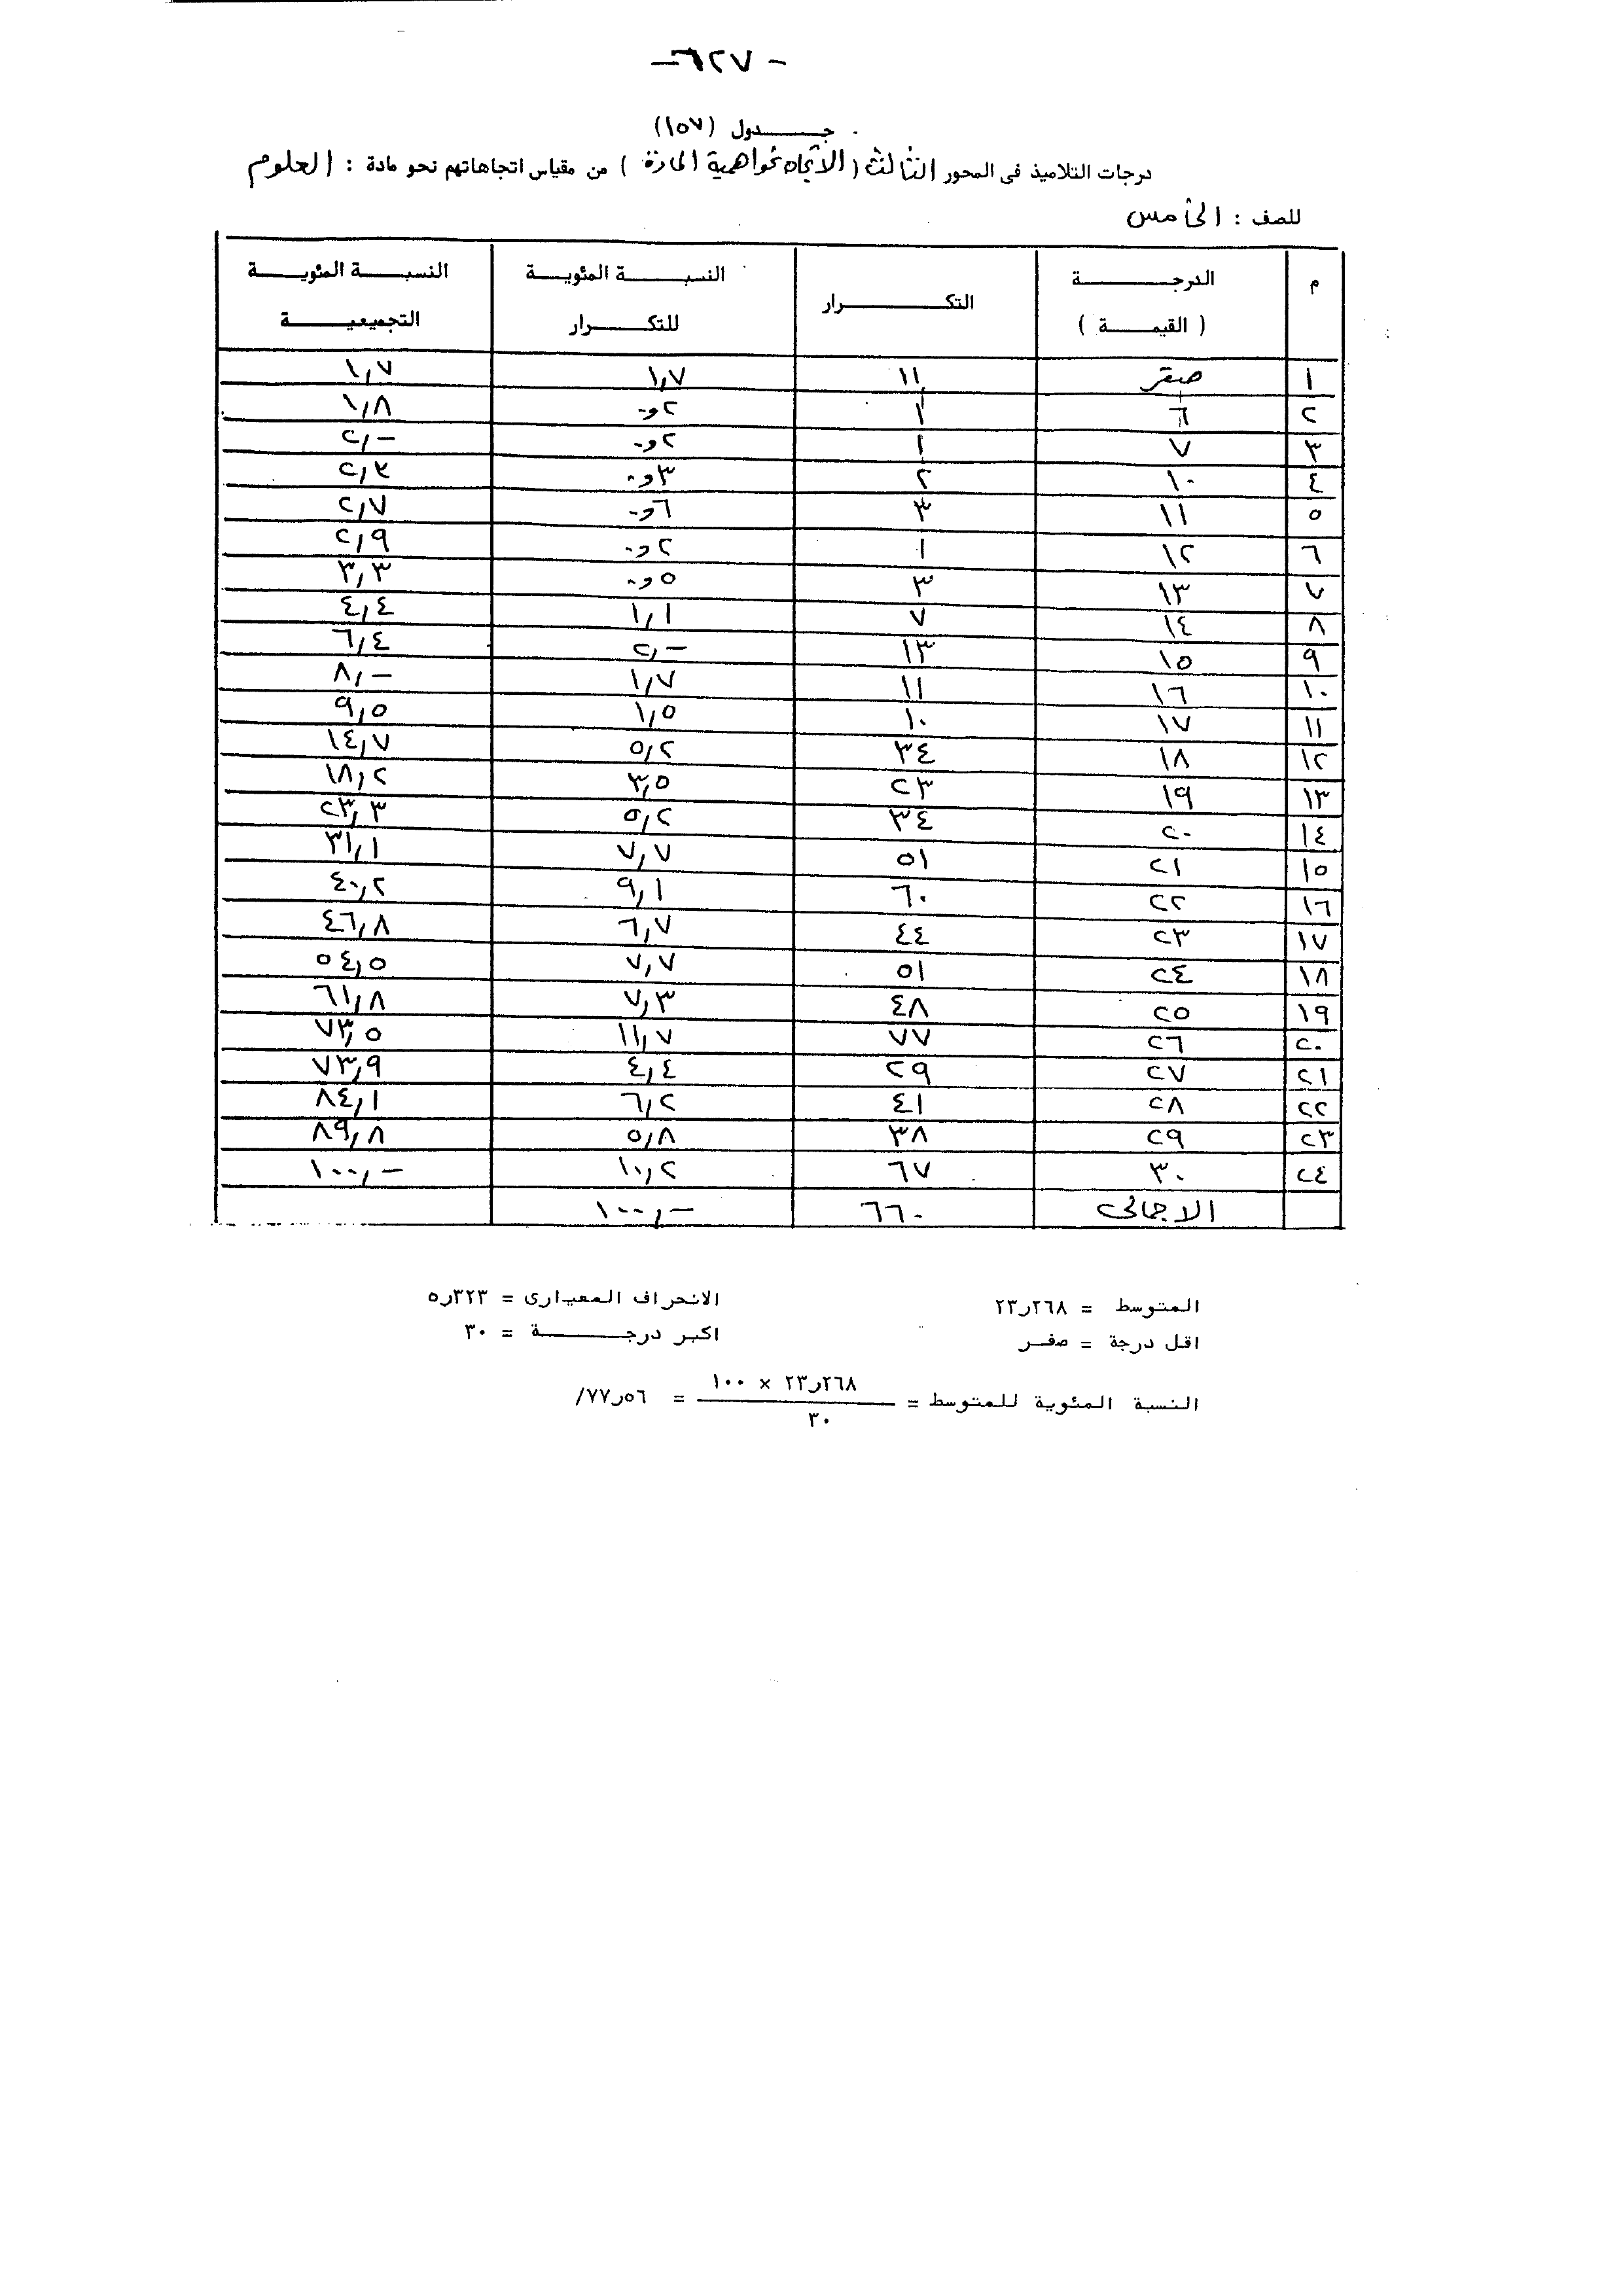 - ٦٢٧ -
جــــدول (١٥٧)
درجات التلاميذ فى المحور الثالث ( الاتجاه نحو اهمية المادة ) من مقياس اتجاهاتهم نحو مادة : العلوم
للصف : الخامس
م الدرجــــة ( القيمــة ) التكــــرار النسبــــة المئويــة للتكــــرار النسبــــة المئويــة التجميعيــــة
١ صفر ١١ ١,٧ ١,٧
٢ ٦ ١ ٢و٠ ١,٨
٣ ٧ ١ ٢و٠ ٢,-
٤ ١٠ ٢ ٣و٠ ٢,٣
٥ ١١ ٣ ٦و٠ ٢,٧
٦ ١٢ ١ ٢و٠ ٢,٩
٧ ١٣ ٣ ٥و٠ ٣,٣
٨ ١٤ ٧ ١,١ ٤,٤
٩ ١٥ ١٣ ٢,- ٦,٤
١٠ ١٦ ١١ ١,٧ ٨,-
١١ ١٧ ١٠ ١,٥ ٩,٥
١٢ ١٨ ٣٤ ٥,٢ ١٤,٧
١٣ ١٩ ٢٣ ٣,٥ ١٨,٢
١٤ ٢٠ ٣٤ ٥,٢ ٢٣,٣
١٥ ٢١ ٥١ ٧,٧ ٣١,١
١٦ ٢٢ ٦٠ ٩,١ ٤٠,٢
١٧ ٢٣ ٤٤ ٦,٧ ٤٦,٨
١٨ ٢٤ ٥١ ٧,٧ ٥٤,٥
١٩ ٢٥ ٤٨ ٧,٣ ٦١,٨
٢٠ ٢٦ ٧٧ ١١,٧ ٧٣,٥
٢١ ٢٧ ٢٩ ٤,٤ ٧٣,٩
٢٢ ٢٨ ٤١ ٦,٢ ٨٤,١
٢٣ ٢٩ ٣٨ ٥,٨ ٨٩,٨
٢٤ ٣٠ ٦٧ ١٠,٢ ١٠٠,-
الاجمالى ٦٦٠ ١٠٠,-
المتوسط = ٢٦٨ر٢٣ الانحراف المعيارى = ٣٢٣ر٥
اقل درجة = صفــر اكبر درجــــة = ٣٠
النسبة المئوية للمتوسط = ٢٦٨ر٢٣ × ١٠٠ / ٣٠ = ٥٦ر٧٧/